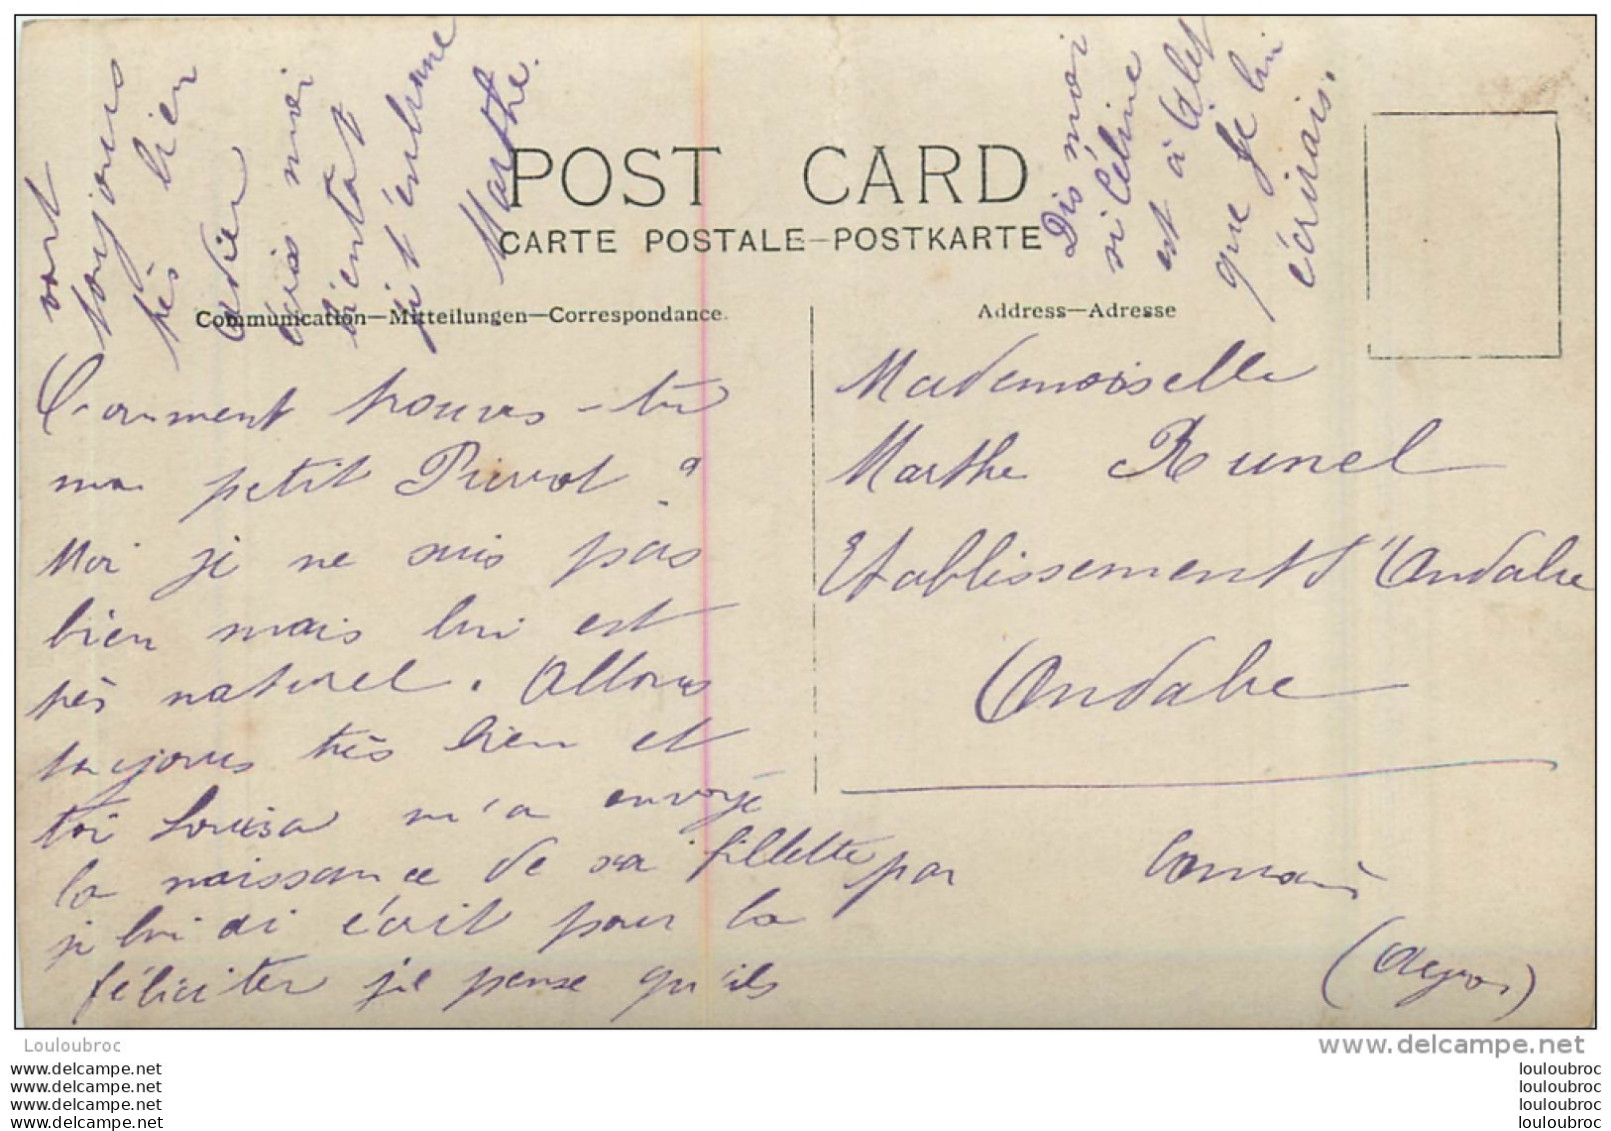 POST CARD
CARTE POSTALE-POSTKARTE
Communication—Mitteilungen—Correspondance.
Address—Adresse
Comment trouves-tu
mon petit Pierrot ?
Moi je ne suis pas
bien mais lui est
très naturel. Allons
toujours très bien et
toi Louisa m'a envoyé
la naissance de sa fillette
je lui ai écrit pour la
féliciter je pense qu'ils
vont
toujours
très bien
adieu
écris moi
bientôt
je t'embrasse
Marthe.
Dis moi
si Céline
est à
que je lui
écrirais.
Mademoiselle
Marthe Runel
Etablissement d'Andabre
Andabre
par Camarès
(Aveyron)
Louloubroc
www.delcampe.net
www.delcampe.net
www.delcampe.net
www.delcampe.net
www.delcampe.net
louloubroc
louloubroc
louloubroc
louloubroc